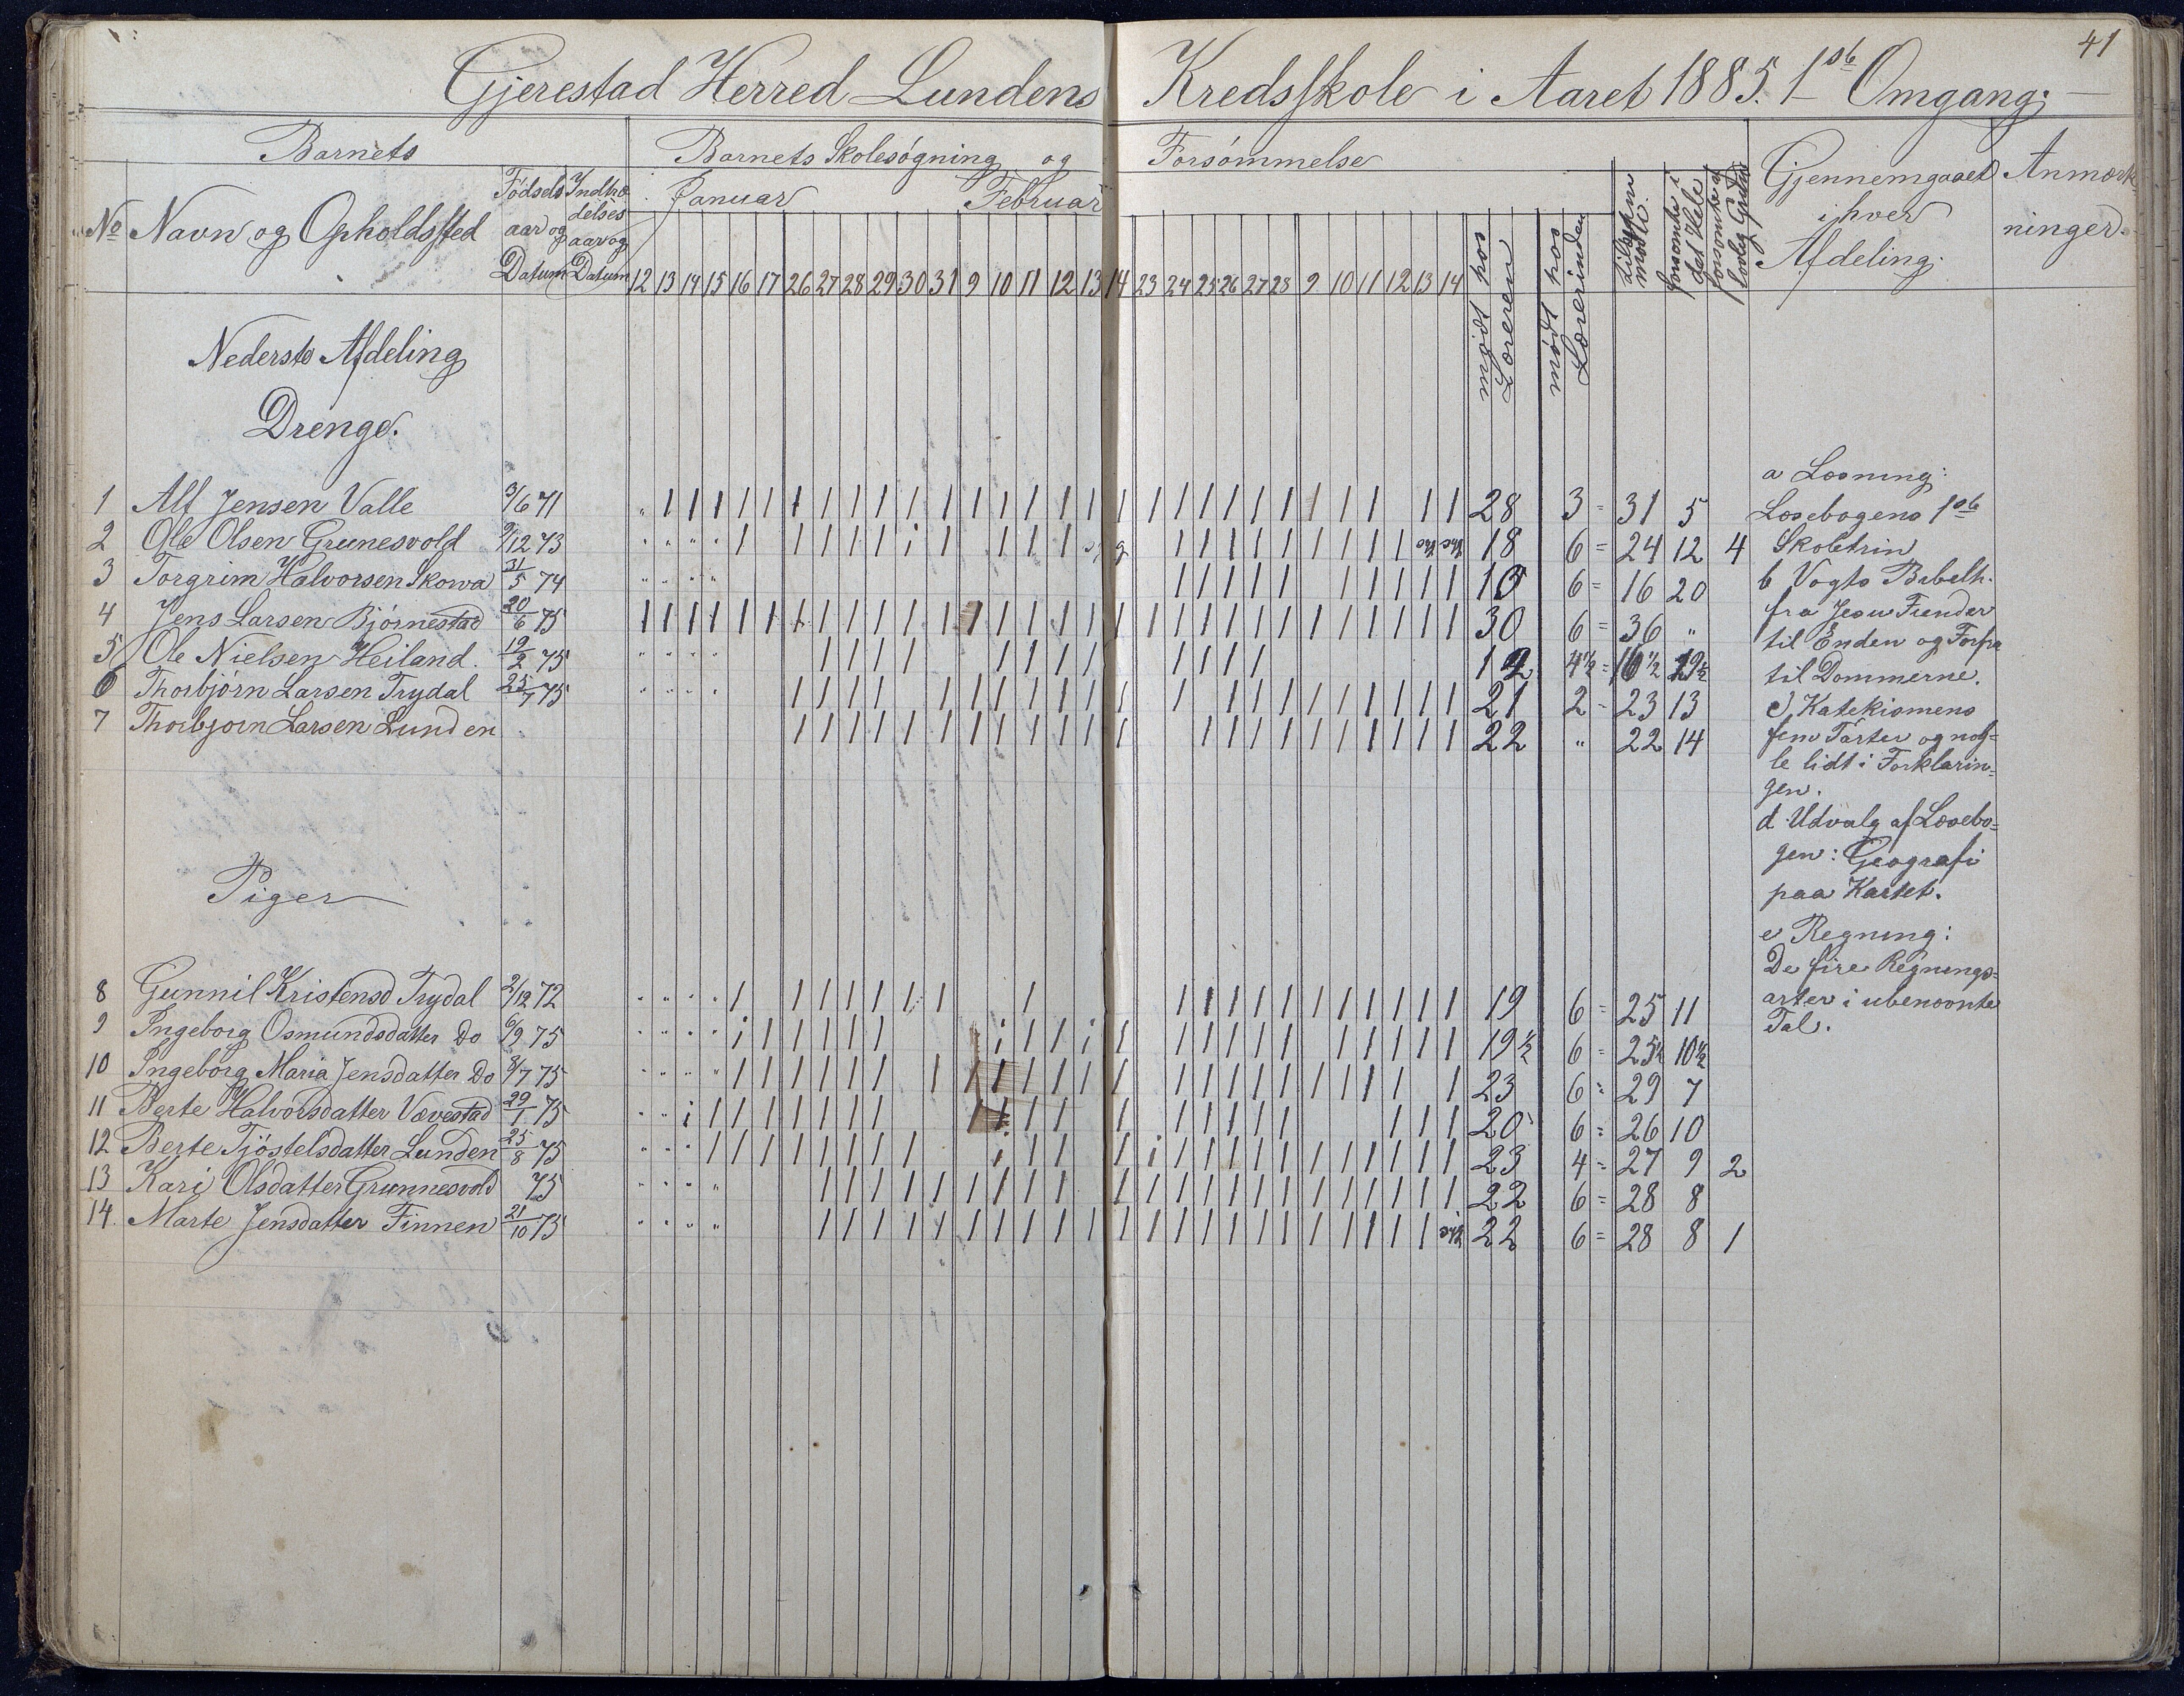 41
Gjerestad Herred Lundens Kredsskole i Aaret 1885. 1ste Omgang.
Barnets Barnets Skolesøgning og Forsømmelse
No Navn og Opholdssted Fødsels aar og Datum Indtræ delses aar og Datum Januar Februar
12 13 14 15 16 17 26 27 28 29 30 31 9 10 11 12 13 14 23 24 25 26 27 28 9 10 11 12 13 14
mødt hos Læreren
mødt hos Lærerinden
tilsammen mødte
forsømte i det Hele
forsømte af lovlig Grund
Gjennemgaaet i hver Afdeling.
Anmærk ninger.
Nederste Afdeling
Drenge.
1 Alf Jensen Valle 3/6 71 28 3 = 31 5
2 Ole Olsen Grunesvold 9/12 73 18 6 = 24 12 4
3 Torgrim Halvorsen Skorva 31/5 74 10 6 = 16 20
4 Jens Larsen Bjørnestad 20/6 75 30 6 = 36 "
5 Ole Nielsen Heiland. 19/2 75 12 4 1/2 = 16 1/2 19 1/2
6 Thorbjørn Larsen Trydal 25/7 75 21 2 = 23 13
7 Thorbjørn Larsen Lunden 22 " 22 14
Piger
8 Gunnil Kristensd Trydal 2/12 72 19 6 = 25 11
9 Ingeborg Osmundsdatter Do 6/9 75 19 1/2 6 = 25 1/2 10 1/2
10 Ingeborg Maria Jensdatter Do 3/7 75 23 6 = 29 7
11 Berte Halvorsdatter Vævestad 29/1 75 20 6 = 26 10
12 Berte Tjöstelsdatter Lunden 25/8 75 23 4 = 27 9 2
13 Kari Olsdatter Grunnesvold 75 22 6 = 28 8
14. Marte Jensdatter Finnen 21/10 75 22 6 = 28 8 1
a Læsning:
Læsebogens 1ste
Skoletrin
b Vogts Bibelh.
fra Jesu Fiender
til Enden og Forfra
til Dommerne.
c, Katekismens
fem Parter og nog=
le lidt i Forklarin=
gen.
d Udvalg af Læsebo=
gen: Geografi
paa Kartet.
e Regning:
De fire Regnings=
arter i ubenævnte
Tal.